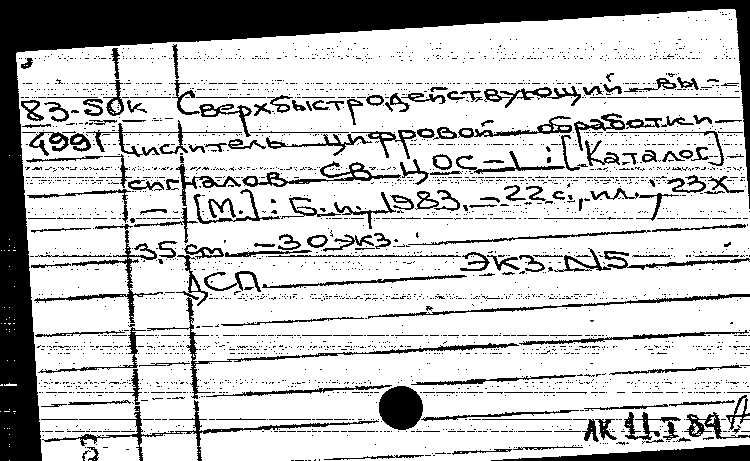 83-50к Сверхбыстродействующий вы-
4991 числитель цифровой обработки
сигналов СВ ЦОС-1 : [Каталог]
. — [М.] : Б.и., 1983. – 22 с., ил. ; 23х
35 см. – 30 экз.
ДСП. Экз. №5
ЛК 11.I 84